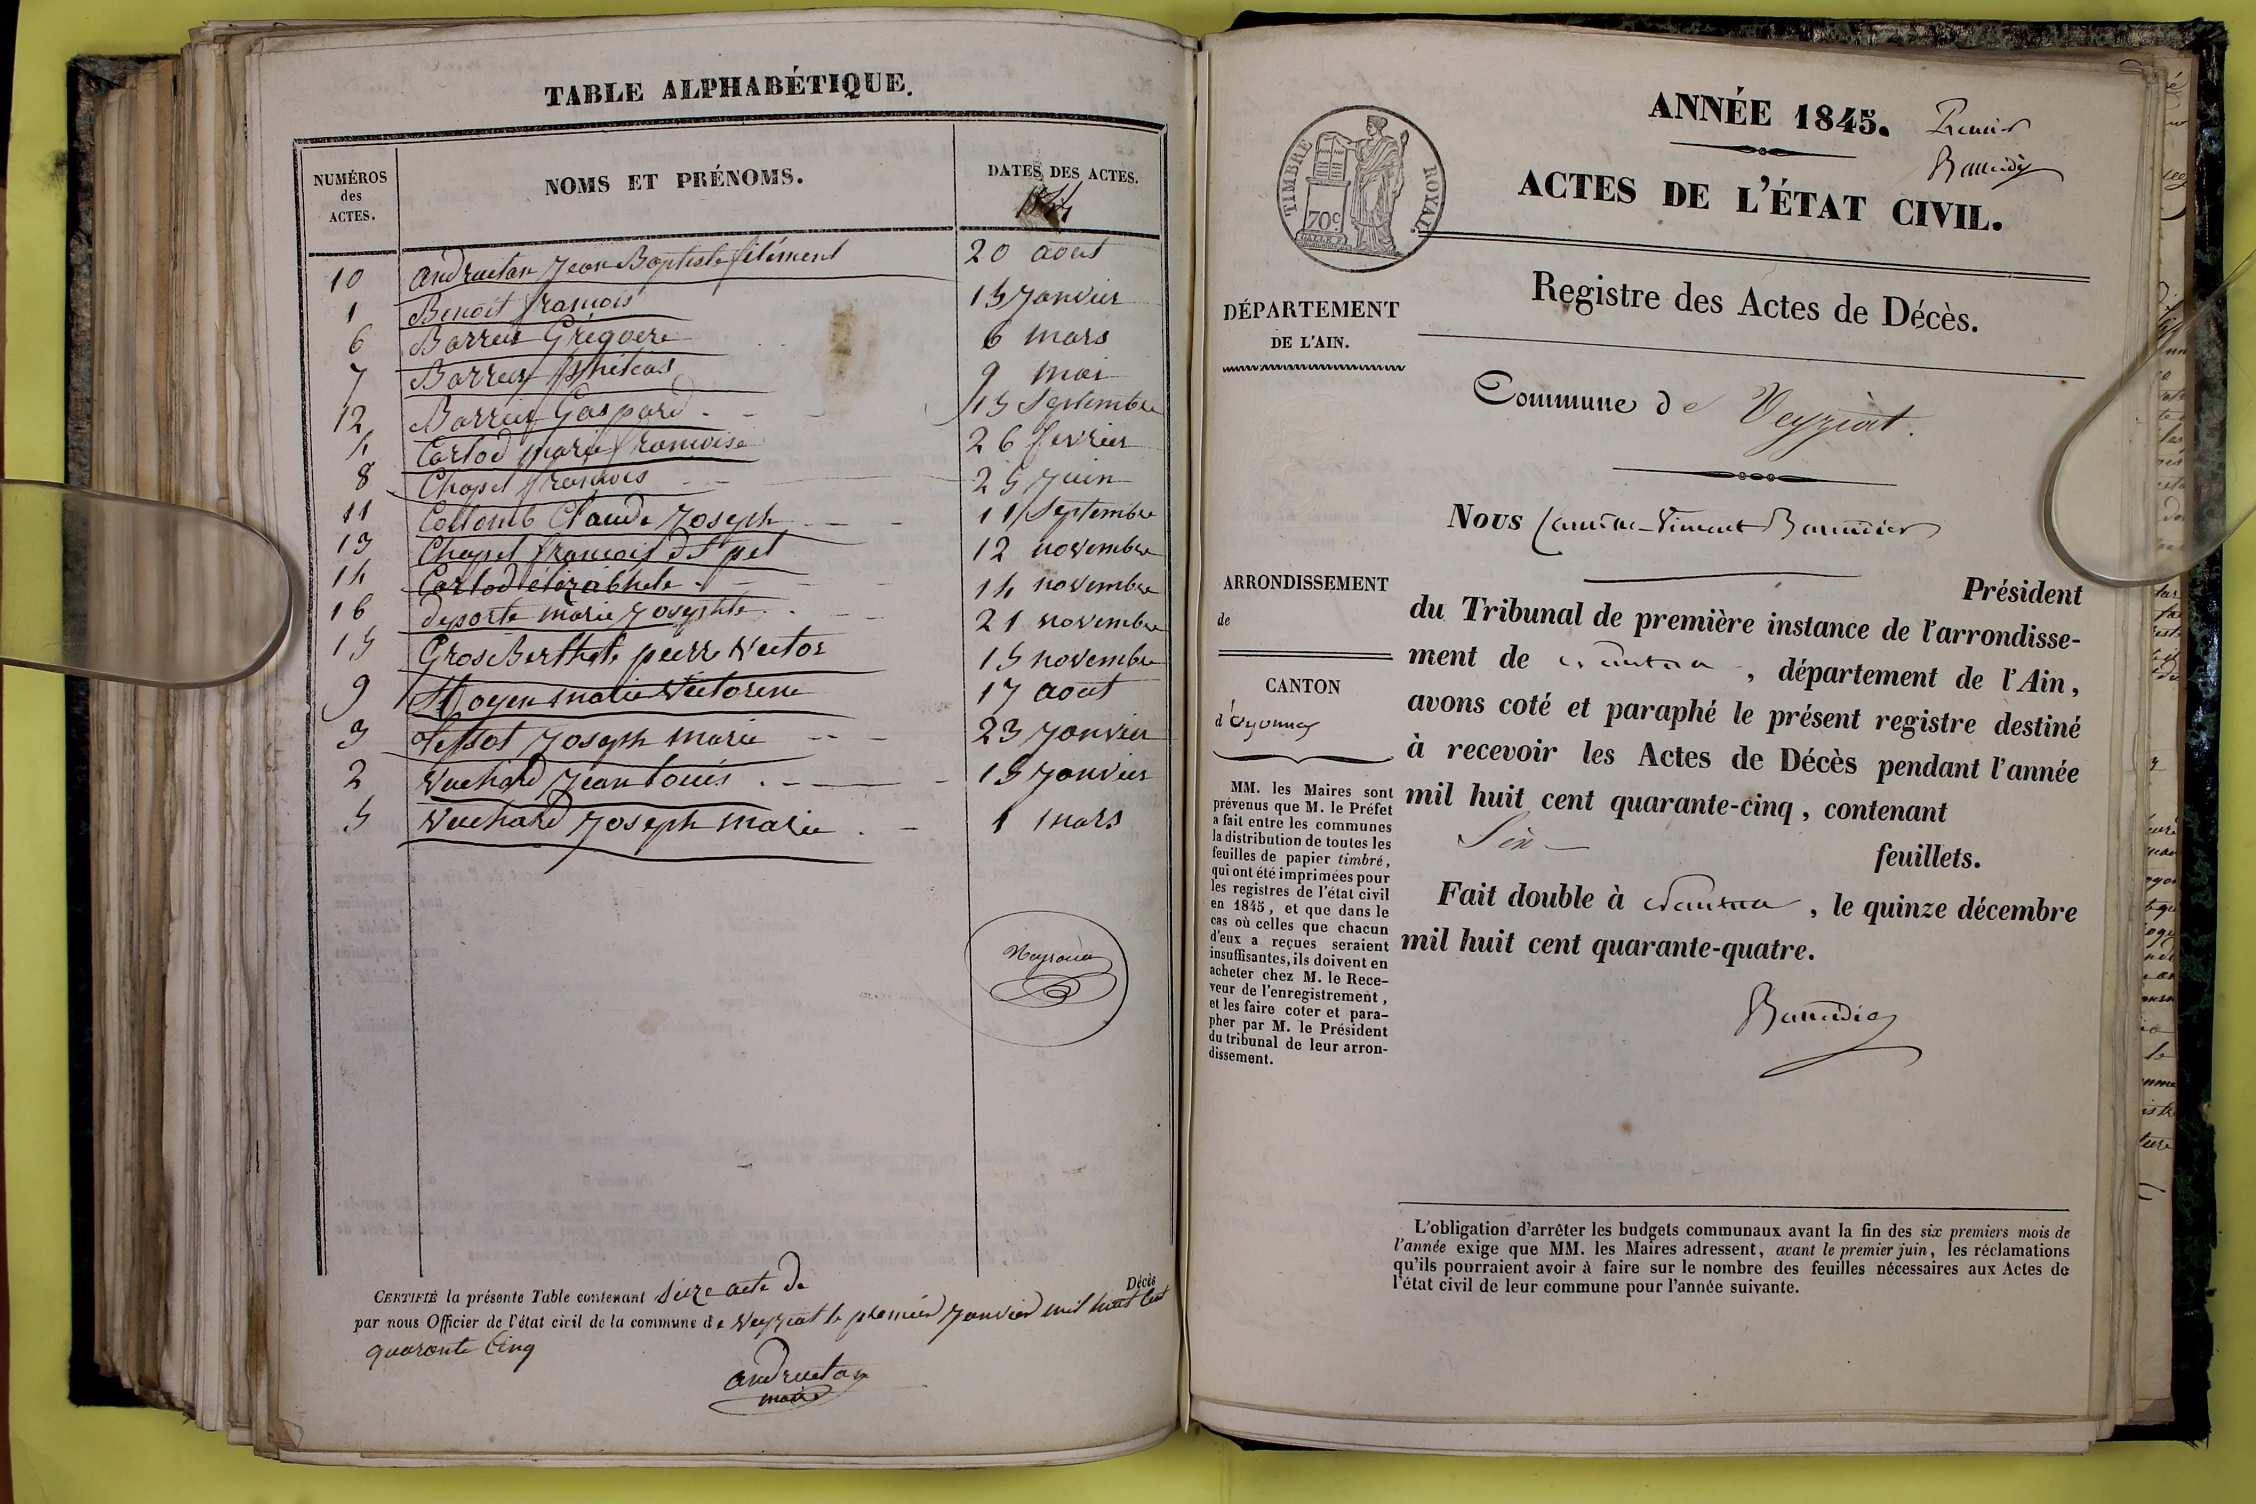 TABLE ALPHABÉTIQUE.
NUMÉROS des ACTES.
NOMS ET PRÉNOMS.
DATES DES ACTES.
1844
10 andruetan Jean Baptiste Clément 20 aout
1 Benoit françois 15 Janvier
6 Borron Grégoire 6 mars
7 9 mai
12 Gaspard 15 Septembre
4 Carlod marie françoise 26 fevrier
8 Chapel françois 25 Juin
11 Collomb Claude Joseph 11 Septembre
13 Chapel françois dt pet 12 novembre
14 Carlod élizabhete 14 novembre
16 deporte marie Josephte 21 novembre
15 Gros Berthete pierre Victor 15 novembre
9 marie Victorine 17 aout
3 Joseph marie 23 Janvier
2 Vuchard Jean Louis 15 Janvier
5 Vuchard Joseph marie 1 mars
CERTIFIÉ la présente Table contenant Seize acte de Décès
par nous Officier de l'état civil de la commune de Veyziat le premier Janvier mil huit Cent
quaronte Cinq
andruetan
maire
TIMBRE ROYAL.
70c
ANNÉE 1845.
Premier
ACTES DE L'ÉTAT CIVIL.
Registre des Actes de Décès.
DÉPARTEMENT
DE L'AIN.
Commune de Veyziat.
Nous
Président
ARRONDISSEMENT
de
CANTON
d'Oyonnax
du Tribunal de première instance de l'arrondisse-
ment de Nantua, département de l'Ain,
avons coté et paraphé le présent registre destiné
à recevoir les Actes de Décès pendant l'année
mil huit cent quarante-cinq, contenant
Six
feuillets.
Fait double à Nantua, le quinze décembre
mil huit cent quarante-quatre.
MM. les Maires sont
prévenus que M. le Préfet
a fait entre les communes
la distribution de toutes les
feuilles de papier timbré,
qui ont été imprimées pour
les registres de l'état civil
en 1845, et que dans le
cas où celles que chacun
d'eux a reçues seraient
insuffisantes, ils doivent en
acheter chez M. le Rece-
veur de l'enregistrement,
et les faire coter et para-
pher par M. le Président
du tribunal de leur arron-
dissement.
L'obligation d'arrêter les budgets communaux avant la fin des six premiers mois de
l'année exige que MM. les Maires adressent, avant le premier juin, les réclamations
qu'ils pourraient avoir à faire sur le nombre des feuilles nécessaires aux Actes de
l'état civil de leur commune pour l'année suivante.